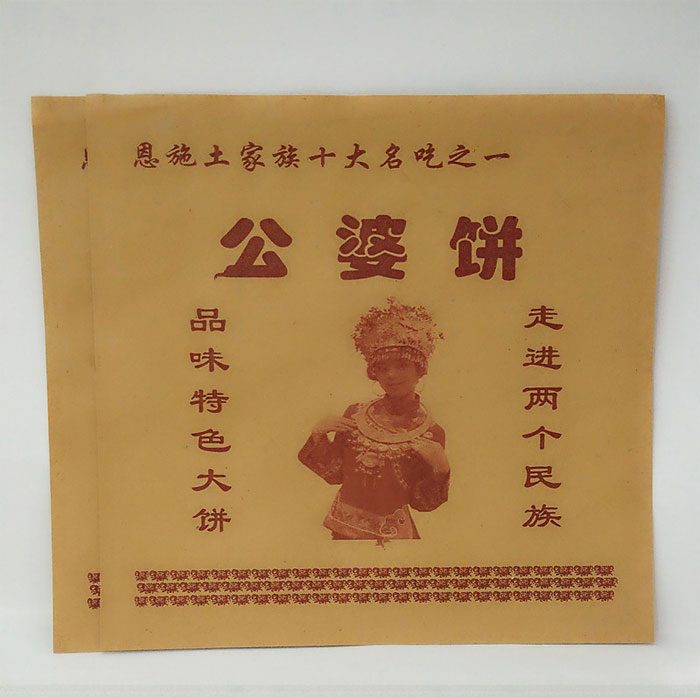 恩施土家族十大名吃之一
公婆饼
走进两个民族
品味特色大饼